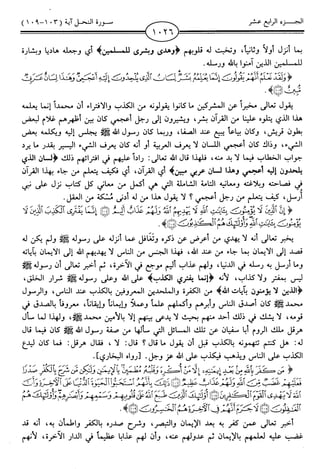 الجـزء الرابع عشر
١٠٢٦
سـورة النحـل آية (١٠٣-١٠٩)
بما أنزل أولاً وثانياً، وتخبت له قلوبهم ﴿وهدى وبشرى للمسلمين﴾ أي وجعله هادياً وبشارة
للمسلمين الذين آمنوا بالله ورسله.
﴿وَلَقَدْ نَعْلَمُ أَنَّهُمْ يَقُولُونَ إِنَّمَا يُعَلِّمُهُ بَشَرٌ لِسَانُ الَّذِي يُلْحِدُونَ إِلَيْهِ أَعْجَمِيٌّ وَهَذَا لِسَانٌ عَرَبِيٌّ
مُبِينٌ﴾.
يقول تعالى مخبراً عن المشركين ما كانوا يقولونه من الكذب والافتراء أن محمداً إنما يعلمه
هذا الذي يتلوه علينا من القرآن بشر، ويشيرون إلى رجل أعجمي كان بين أظهرهم غلام لبعض
بطون قريش، وكان بياعاً يبيع عند الصفا، وربما كان رسول الله ﷺ يجلس إليه ويكلمه بعض
الشيء، وذاك كان أعجمي اللسان لا يعرف العربية أو أنه كان يعرف الشيء اليسير بقدر ما يرد
جواب الخطاب فيما لا بد منه، فلهذا قال الله تعالى: راداً عليهم في افترائهم ذلك ﴿لسان الذي
يلحدون إليه أعجمي وهذا لسان عربي مبين﴾ أي القرآن، أي فكيف يتعلم من جاء بهذا القرآن
في فصاحته وبلاغته ومعانيه التامة الشاملة التي هي أكمل من معاني كل كتاب نزل على نبي
أرسل، كيف يتعلم من رجل أعجمي؟ لا يقول هذا من له أدنى مُسْكة من العقل.
﴿إِنَّ الَّذِينَ لَا يُؤْمِنُونَ بِآيَاتِ اللَّهِ لَا يَهْدِيهِمُ اللَّهُ وَلَهُمْ عَذَابٌ أَلِيمٌ إِنَّمَا يَفْتَرِي الْكَذِبَ الَّذِينَ لَا
يُؤْمِنُونَ بِآيَاتِ اللَّهِ وَأُولَئِكَ هُمُ الْكَاذِبُونَ﴾.
يخبر تعالى أنه لا يهدي من أعرض عن ذكره وتَغَافل عما أنزله على رسوله ﷺ ولم يكن له
قصد إلى الإيمان بما جاء من عند الله، فهذا الجنس من الناس لا يهديهم الله إلى الإيمان بآياته
وما أرسل به رسله في الدنيا، ولهم عذاب أليم موجع في الآخرة، ثم أخبر تعالى أن رسوله ﷺ
ليس بمفتر ولا كذاب، لأنه ﴿إنما يفتري الكذب﴾ على الله وعلى رسوله ﷺ شرار الخلق،
﴿الذين لا يؤمنون بآيات الله﴾ من الكفرة والملحدين المعروفين بالكذب عند الناس، والرسول
محمد ﷺ كان أصدق الناس وأبرهم وأكملهم علماً وعملاً وإيماناً وإيقاناً، معروفاً بالصدق في
قومه، لا يشك في ذلك أحد منهم بحيث لا يدعى بينهم إلا بالأمين محمد ﷺ، ولهذا لما سأل
هرقل ملك الروم أبا سفيان عن تلك المسائل التي سألها من صفة رسول الله ﷺ كان فيما قال
له: هل كنتم تتهمونه بالكذب قبل أن يقول ما قال؟ قال: لا ، فقال هرقل: فما كان ليدع
الكذب على الناس ويذهب فيكذب على الله عز وجل. [رواه البخاري].
﴿مَنْ كَفَرَ بِاللَّهِ مِنْ بَعْدِ إِيمَانِهِ إِلَّا مَنْ أُكْرِهَ وَقَلْبُهُ مُطْمَئِنٌّ بِالْإِيمَانِ وَلَكِنْ مَنْ شَرَحَ بِالْكُفْرِ صَدْرًا
فَعَلَيْهِمْ غَضَبٌ مِنَ اللَّهِ وَلَهُمْ عَذَابٌ عَظِيمٌ ذَلِكَ بِأَنَّهُمُ اسْتَحَبُّوا الْحَيَاةَ الدُّنْيَا عَلَى الْآخِرَةِ وَأَنَّ اللَّهَ
لَا يَهْدِي الْقَوْمَ الْكَافِرِينَ أُولَئِكَ الَّذِينَ طَبَعَ اللَّهُ عَلَى قُلُوبِهِمْ وَسَمْعِهِمْ وَأَبْصَارِهِمْ وَأُولَئِكَ هُمُ
الْغَافِلُونَ لَا جَرَمَ أَنَّهُمْ فِي الْآخِرَةِ هُمُ الْخَاسِرُونَ﴾.
أخبر تعالى عمن كفر به بعد الإيمان والتبصر، وشرح صدره بالكفر واطمأن به، أنه قد
غضب عليه لعلمهم بالإيمان ثم عدولهم عنه، وأن لهم عذاباً عظيماً في الدار الآخرة، لأنهم